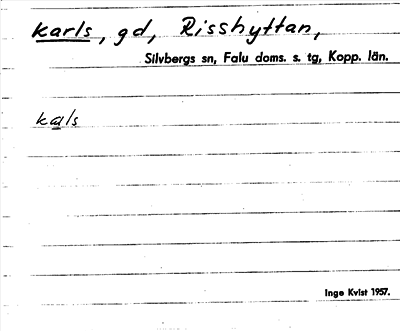 karls, gd, Risshyttan,
Silvbergs sn, Falu doms. s. tg, Kopp. län.
kals
Inge Kvist 1957.